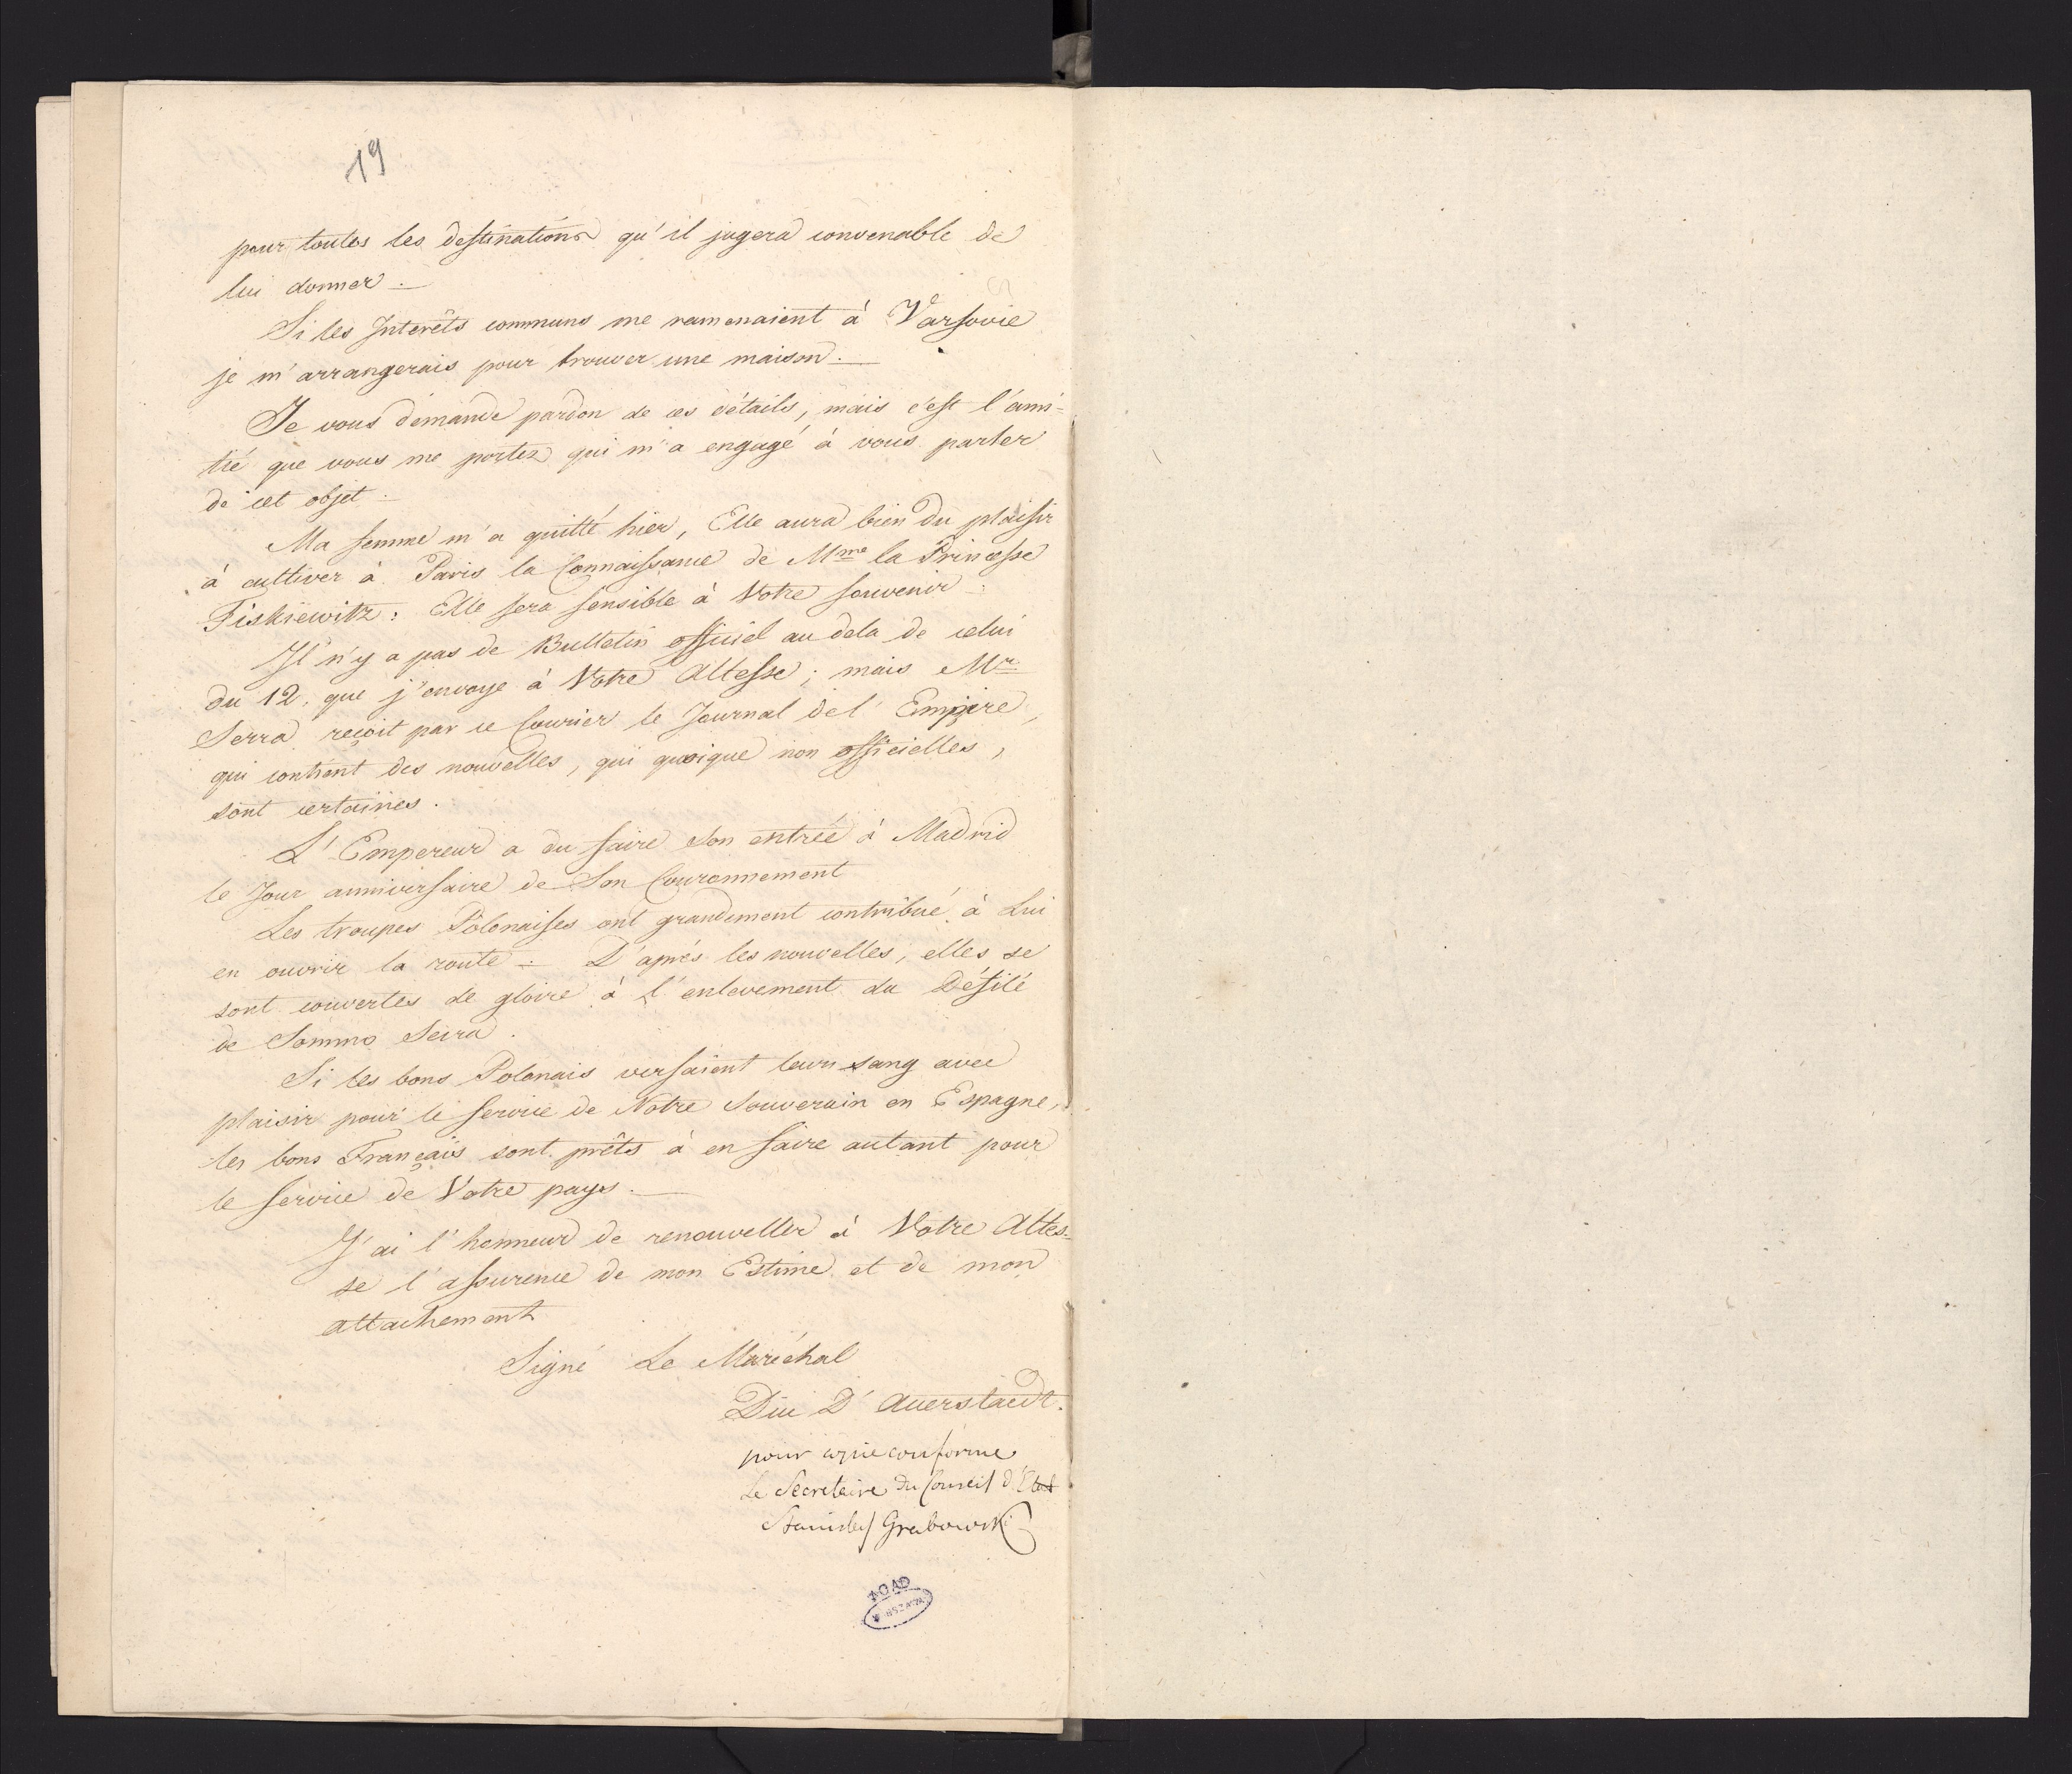 19
pour toutes les destinations qu'il jugera convenable de
lui donner.
Si les Interêts communs me ramenaient à Varsovie
je m'arrangerais pour trouver une maison.
Je vous demande pardon de ces détails, mais c'est l'ami-
tié que vous me portez qui m'a engagé à vous parler
de cet objet.
Ma femme m'a quitté hier, Elle aura bien du plaisir
à cultiver à Paris la Connaissance de Mme la Princesse
Tiskiewitz: Elle sera sensible à Votre souvenir.
Il n'y a pas de Bulletin officiel au dela de celui
du 12, que j'envoye à Votre Altesse; mais Mr
Serra reçoit par ce Courier le Journal de l'Empire,
qui contient des nouvelles, qui quoique non officielles,
sont certaines.
L'Empereur a du faire son entrée à Madrid
le Jour anniversaire de Son Couronnement
Les troupes Polonaises ont grandement contribué à Lui
en ouvrir la route. D'aprés les nouvelles, elles se
sont couvertes de gloire à l'enlevement du Défilé
de Sommo Seira.
Si les bons Polonais versaient leur sang avec
plaisir pour le service de Notre Souverain en Espagne,
les bons Français sont prêts à en faire autant pour
le service de Votre pays.
J'ai l'honneur de renouveller à Votre Altes-
se l'assurence de mon Estime et de mon
attachement
Signé Le Maréchal
Duc D'Auerstaedt.
pour copie conforme
Le Secretaire du Conseil d'Etat
Stanislas Grabowski
AGAD
WARSZAWA